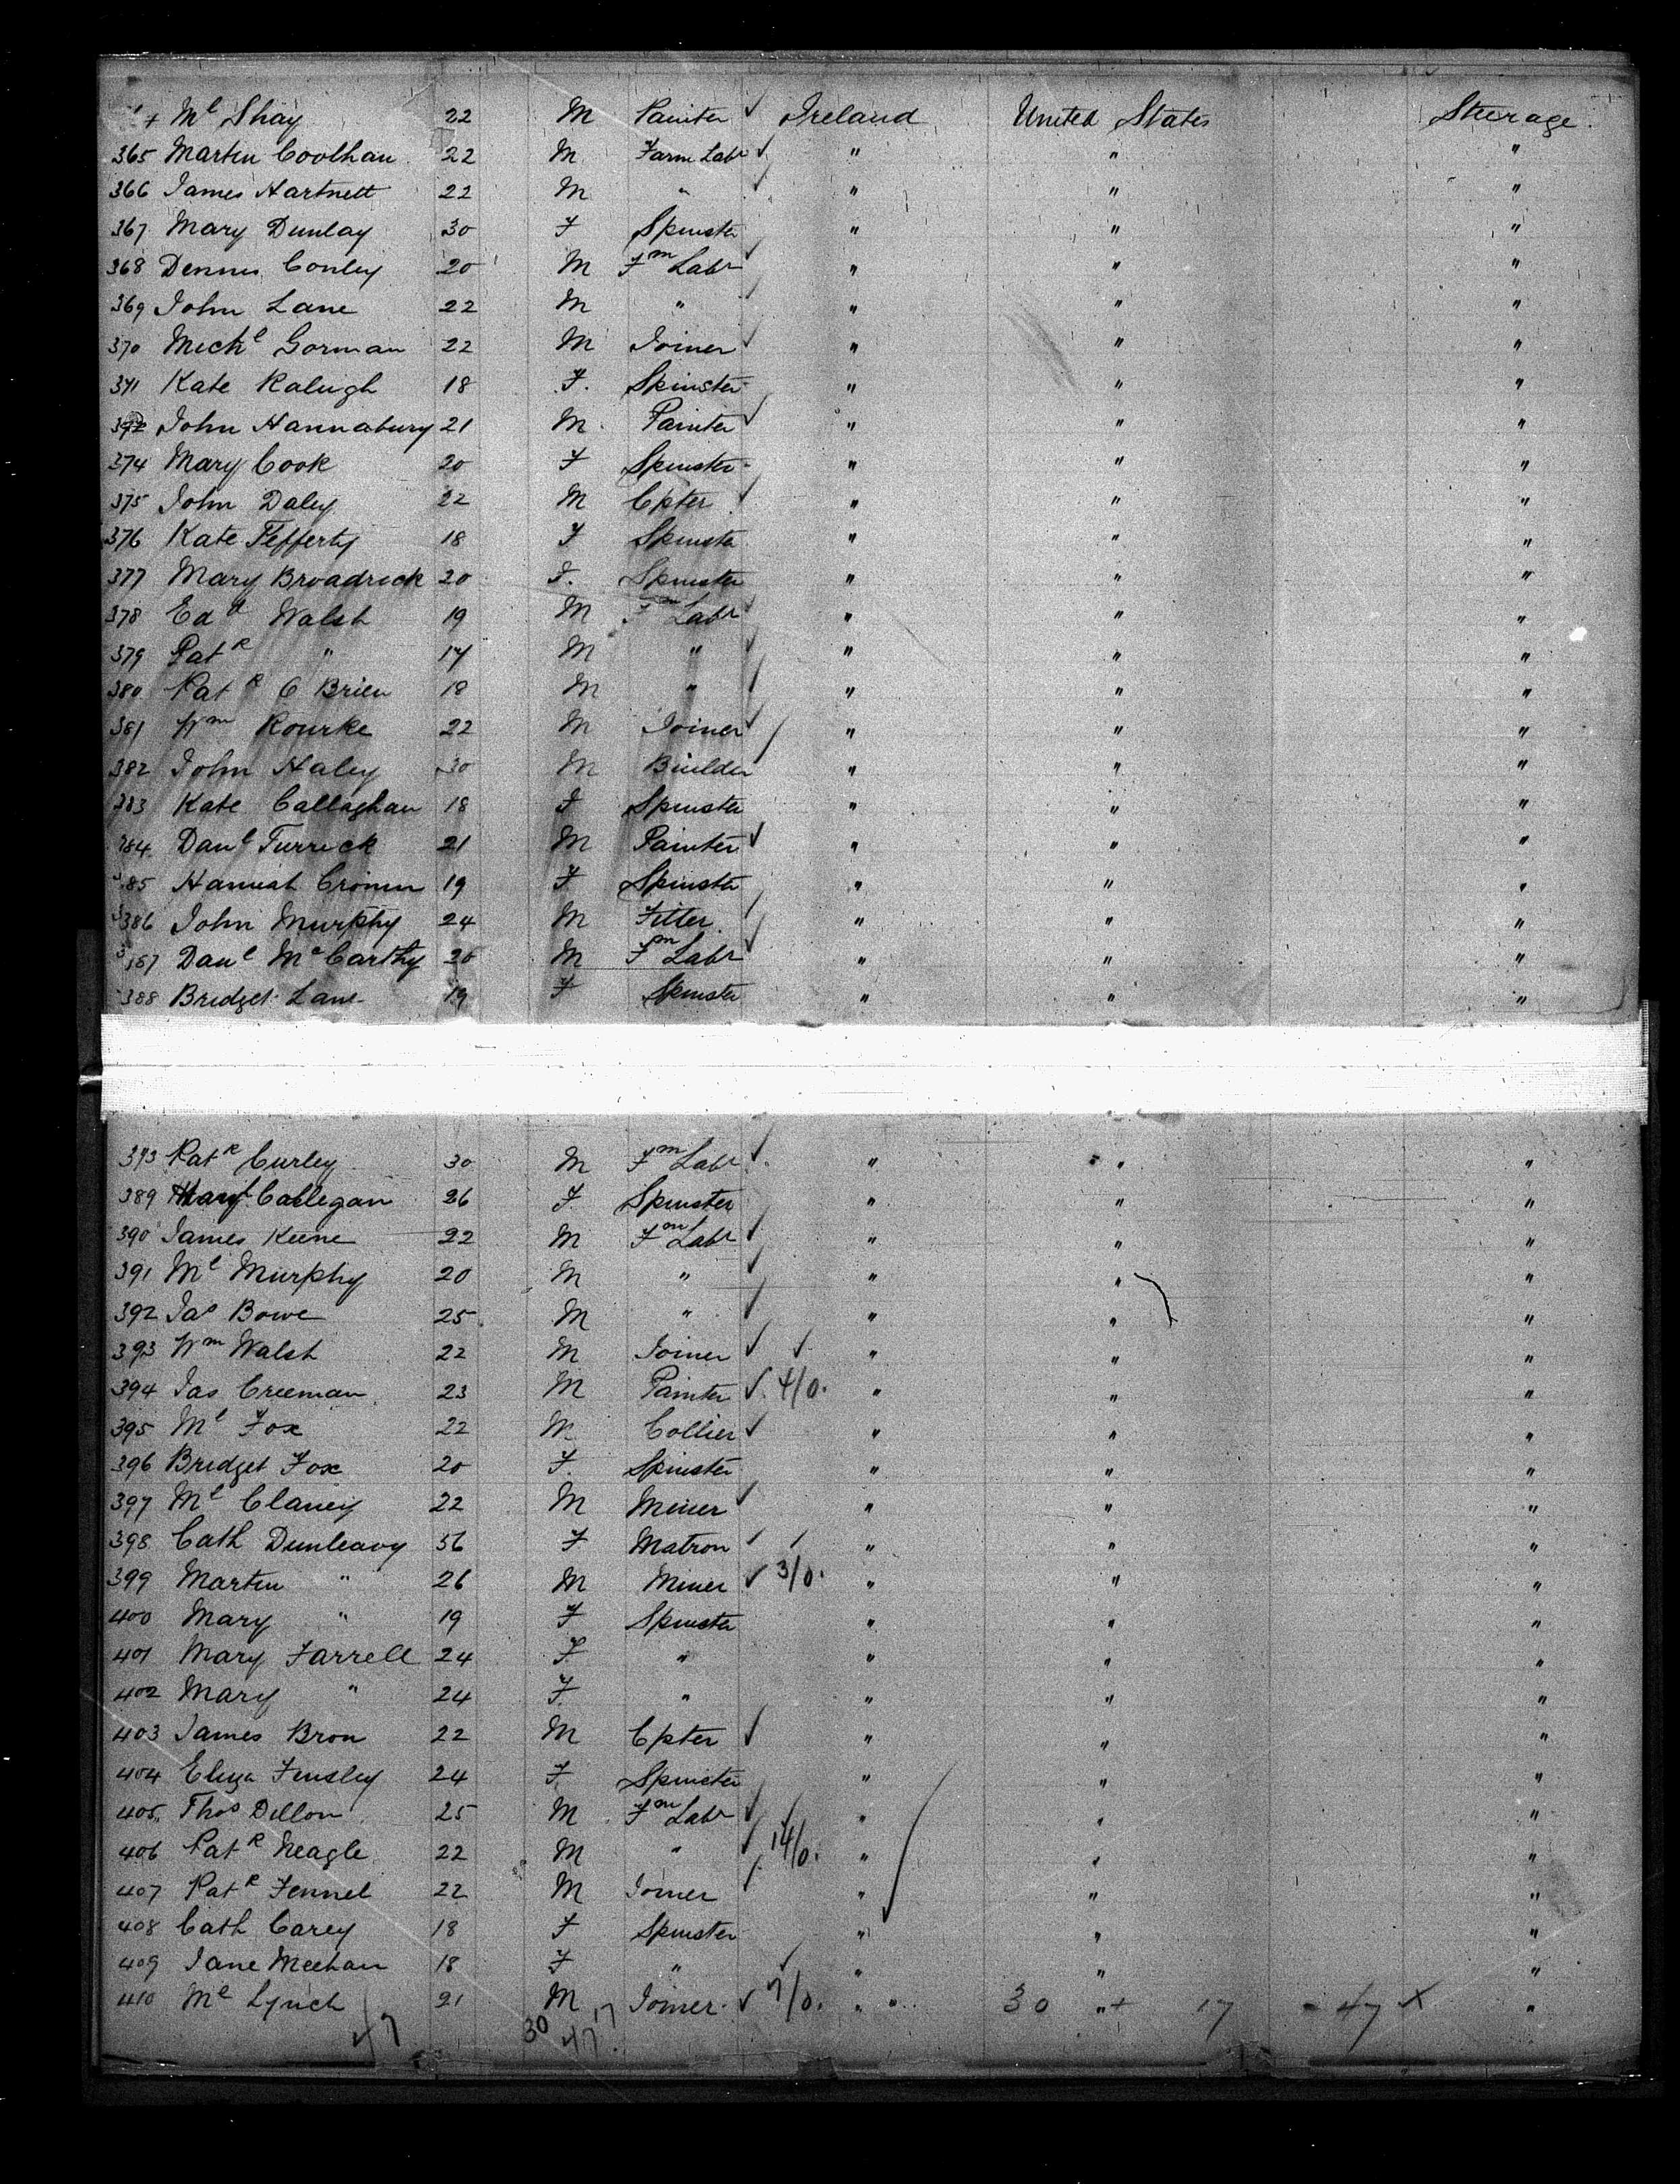 Ml Shay 22 M Painter ✓ Ireland United States Steerage.
365 Martin Coolhan 22 M Farm Labr ✓ " " "
366 James Hartnett 22 M " ✓ " " "
367 Mary Dunlay 30 F Spinster " " "
368 Dennis Conley 20 M Fm Labr ✓ " " "
369 John Lane 22 M " ✓ " " "
370 Michl Gorman 22 M Joiner ✓ " " "
371 Kate Raleigh 18 F. Spinster " " "
John Hannabury 21 M Painter ✓ " " "
374 Mary Cook 20 F Spinster " " "
375 John Daley 22 M Cpter ✓ " " "
376 Kate Fefferty 18 F Spinster " " "
377 Mary Broadrick 20 F. Spinster " " "
378 Edd Walsh 19 M Fm Labr ✓ " " "
379 Patk " 17 M " ✓ " " "
380 Patk O Brien 18 M " ✓ " " "
381 Wm Rourke 22 M Joiner ✓ " " "
382 John Haley 30 M Builder ✓ " " "
383 Kate Callaghan 18 F Spinster " " "
384 Danl Turrick 21 M Painter ✓ " " "
385 Hannah Cronin 19 F Spinster " " "
386 John Murphy 24 M Fitter ✓ " " "
387 Danl McCarthy 20 M Fm Labr ✓ " " "
388 Bridget Lane 19 F Spinster " " "
393 Patk Curley 30 M Fm Labr ✓ " " "
389 Callegan 26 F Spinster " " "
390 James Keene 22 M Fm Labr ✓ " " "
391 Ml Murphy 20 M " ✓ " " "
392 Jas Bowe 25 M " ✓ " " "
393 Wm Walsh 22 M Joiner ✓ ✓ " " "
394 Jas Creeman 23 M Painter ✓ 4/0. " " "
395 Ml Fox 22 M Collier ✓ " " "
396 Bridget Fox 20 F. Spinster " " "
397 Ml Clancy 22 M Miner ✓ " " "
398 Cath Dunleavy 56 F Matron ✓ ✓ " " "
399 Martin " 26 M Miner ✓ 3/0. " " "
400 Mary " 19 F Spinster " " "
401 Mary Farrell 24 F. " " " "
402 Mary " 24 F. " " " "
403 James Bron 22 M Cpter ✓ " " "
404 Eliza Finsley 24 F. Spinster " " "
405 Thos Dillon 25 M Fm Labr ✓ ✓ " " "
406 Patk Neagle 22 M " ✓ 14/0. " " "
407 Patk Fennel 22 M Joiner ✓ " " "
408 Cath Carey 18 F Spinster " " "
409 Jane Meehan 18 F " ✓ " " "
410 Ml Lynch 21 M Joiner ✓ 7/0. " " 30 " + 17 = 47 X "
47 30 47 17